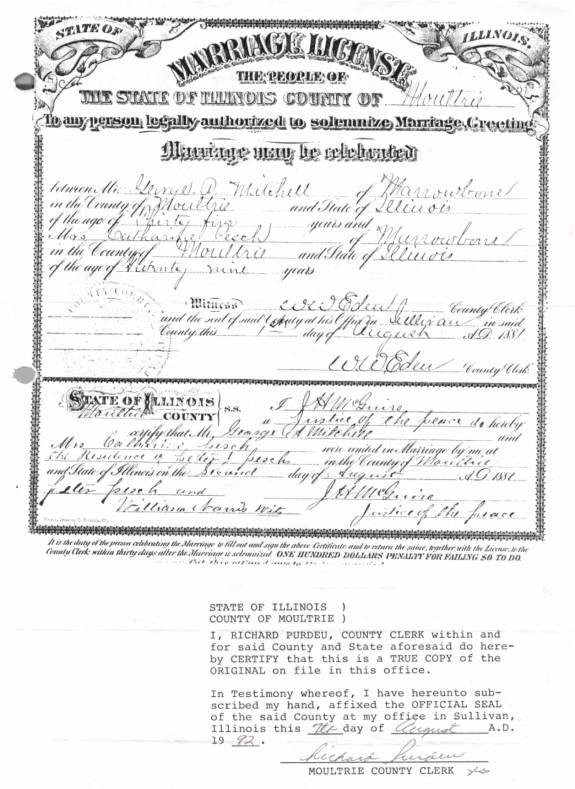 STATE OF ILLINOIS.
MARRIAGE LICENSE
THE PEOPLE OF
THE STATE OF ILLINOIS COUNTY OF Moultrie
To any person legally authorized to solemnize Marriage, Greeting
Marriage may be celebrated
between Mr. George A. Mitchell of Marrowbone
in the County of Moultrie and State of Illinois
of the age of Thirty five years and
Mrs Catharine Pesch of Marrowbone
in the County of Moultrie and State of Illinois
of the age of Twenty nine years
COUNTY COURT
Witness W W Eden County Clerk
and the seal of said County at his Office in Sullivan in said
County, this 1st day of August A.D. 1881
W W Eden County Clerk
STATE OF ILLINOIS
Moultrie COUNTY S.S. I J H McGuire
a Justice of the peace do hereby
certify that Mr. George A Mitchell and
Mrs Catharine Pesch were united in Marriage by me at
the Residence of Peter Pesch in the County of Moultrie
and State of Illinois on the Second day of August A.D. 1881
Peter Pesch and J H McGuire
William Wit Justice of the peace
It is the duty of the person celebrating the Marriage to fill out and sign the above Certificate and to return the same, together with the License, to the
County Clerk within thirty days after the Marriage is solemnized ONE HUNDRED DOLLARS PENALTY FOR FAILING SO TO DO.
STATE OF ILLINOIS )
COUNTY OF MOULTRIE )
I, RICHARD PURDEU, COUNTY CLERK within and
for said County and State aforesaid do here-
by CERTIFY that this is a TRUE COPY of the
ORIGINAL on file in this office.
In Testimony whereof, I have hereunto sub-
scribed my hand, affixed the OFFICIAL SEAL
of the said County at my office in Sullivan,
Illinois this 7th day of August A.D.
19 92.
Richard Purdeu
MOULTRIE COUNTY CLERK